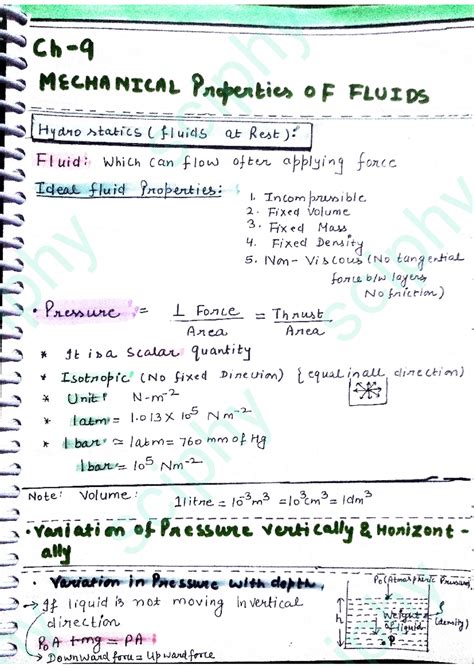 Ch-9
MECHANICAL Properties OF FLUIDS
Hydrostatics (fluids at Rest):
Fluid: Which can flow after applying force
Ideal fluid Properties:
1. Incompressible
2. Fixed Volume
3. Fixed Mass
4. Fixed Density
5. Non-Viscous (No tangential
force b/w layers
No friction)
• Pressure = ⊥ Force / Area = Thrust / Area
* It is a scalar quantity
* Isotropic (No fixed Direction) {equal in all direction)
* Unit: N-m⁻²
* 1atm = 1.013 X 10⁵ Nm⁻²
* 1 bar ≃ 1atm = 760 mm of Hg
1 bar = 10⁵ Nm⁻²
Note: Volume: 1 litre = 10⁻³m³ = 10³cm³ = 1dm³
• Variation of Pressure vertically & Horizont-
ally
• Variation in Pressure with depth
→ If liquid is not moving in vertical
direction
P₀A + mg = PA
• Downward force = Upward force
P₀ (Atmospheric Pressure)
h
Weight
of liquid
ρ
(density)
P
sciphy
sciphy
sciphy
sciphy